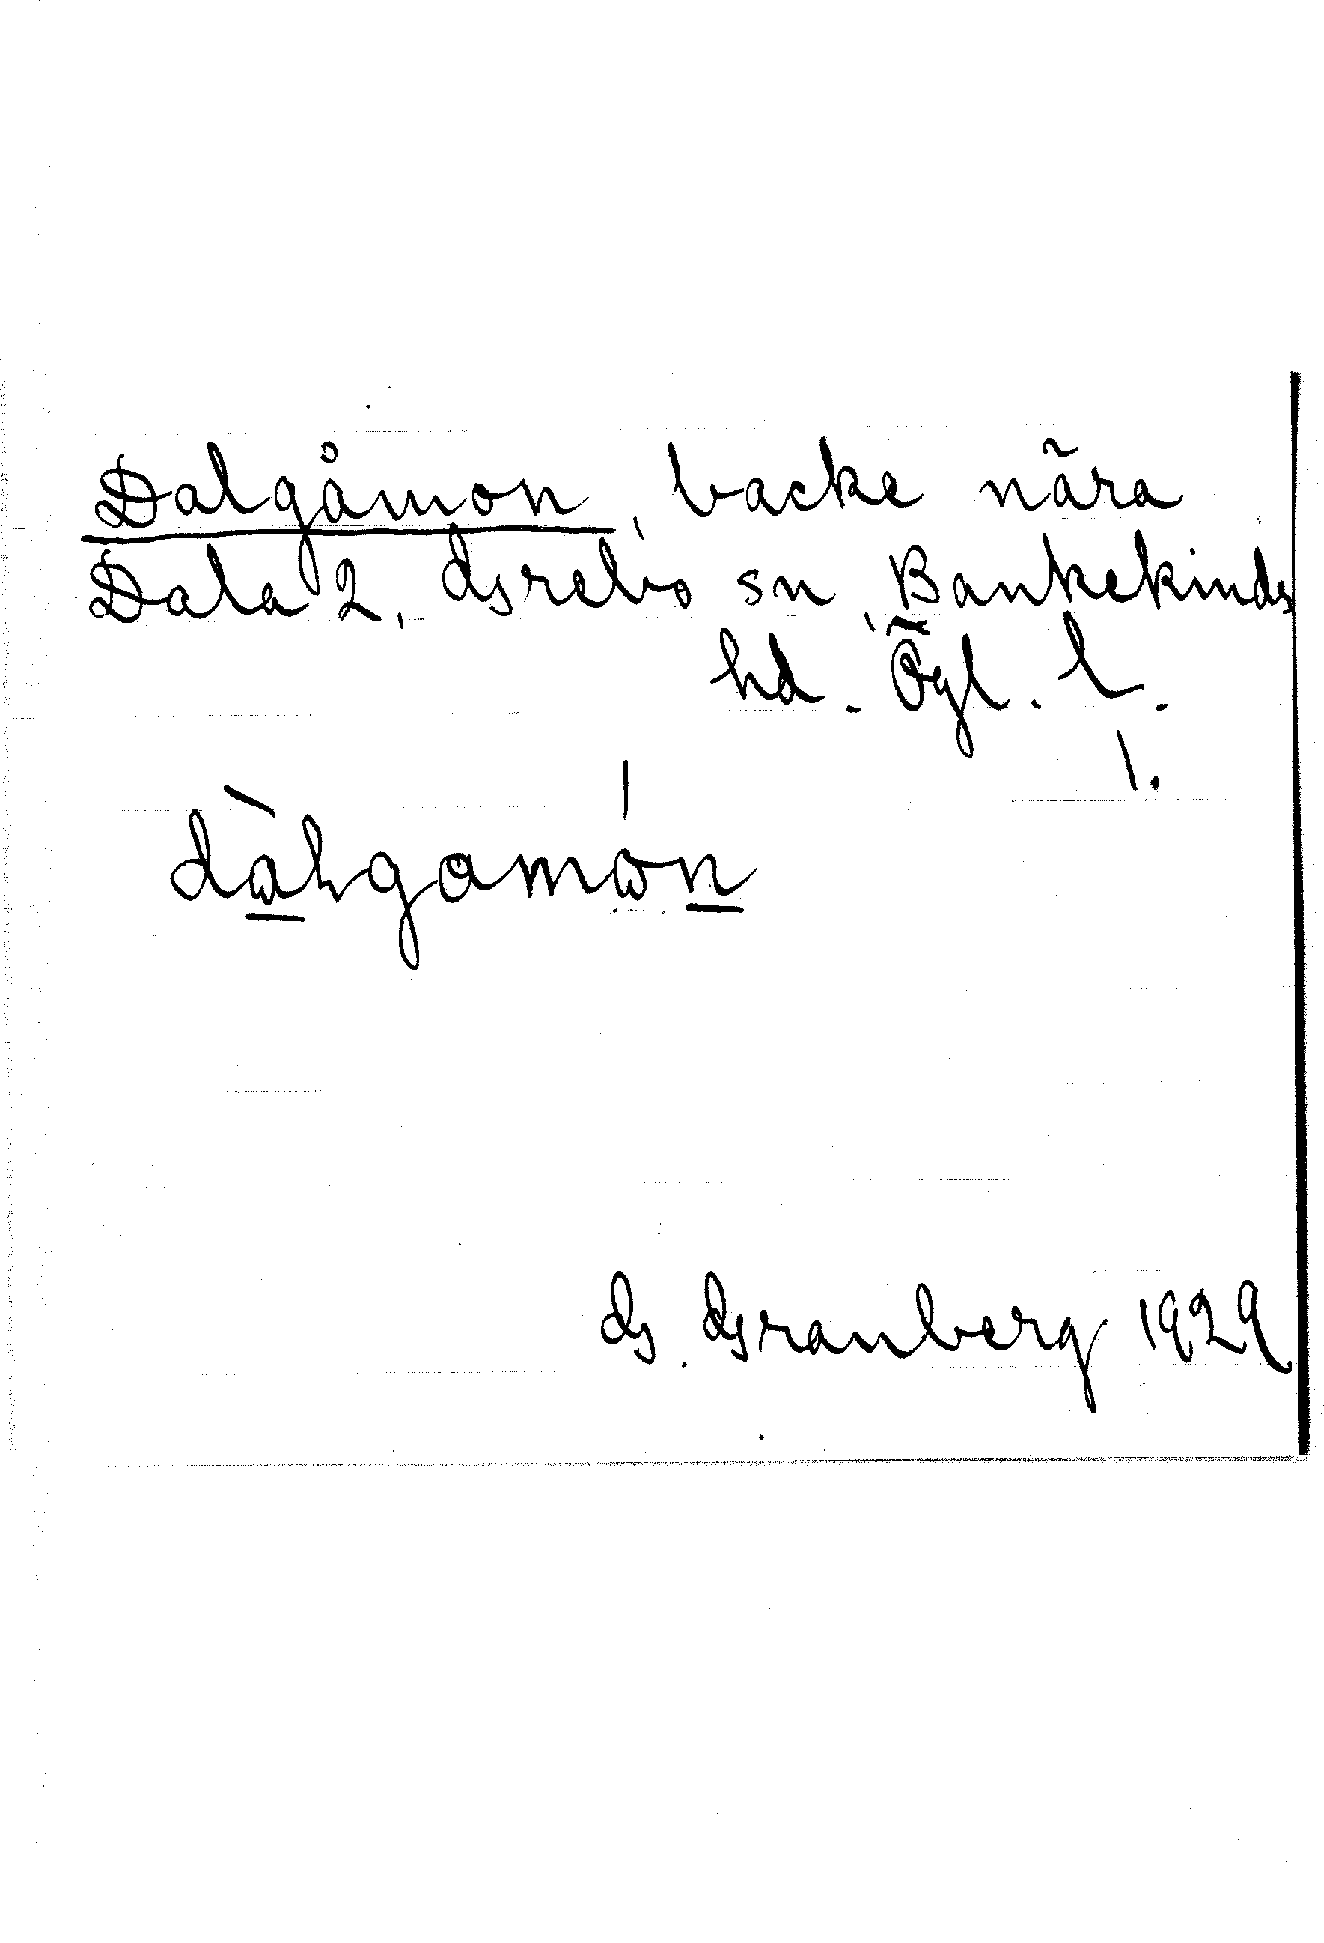 Dalgåmon, backe nära
Dala 2, Grebo sn, Bankekinds
hd. Ögl. l.
1.
dàlgamón
G. Granberg 1929